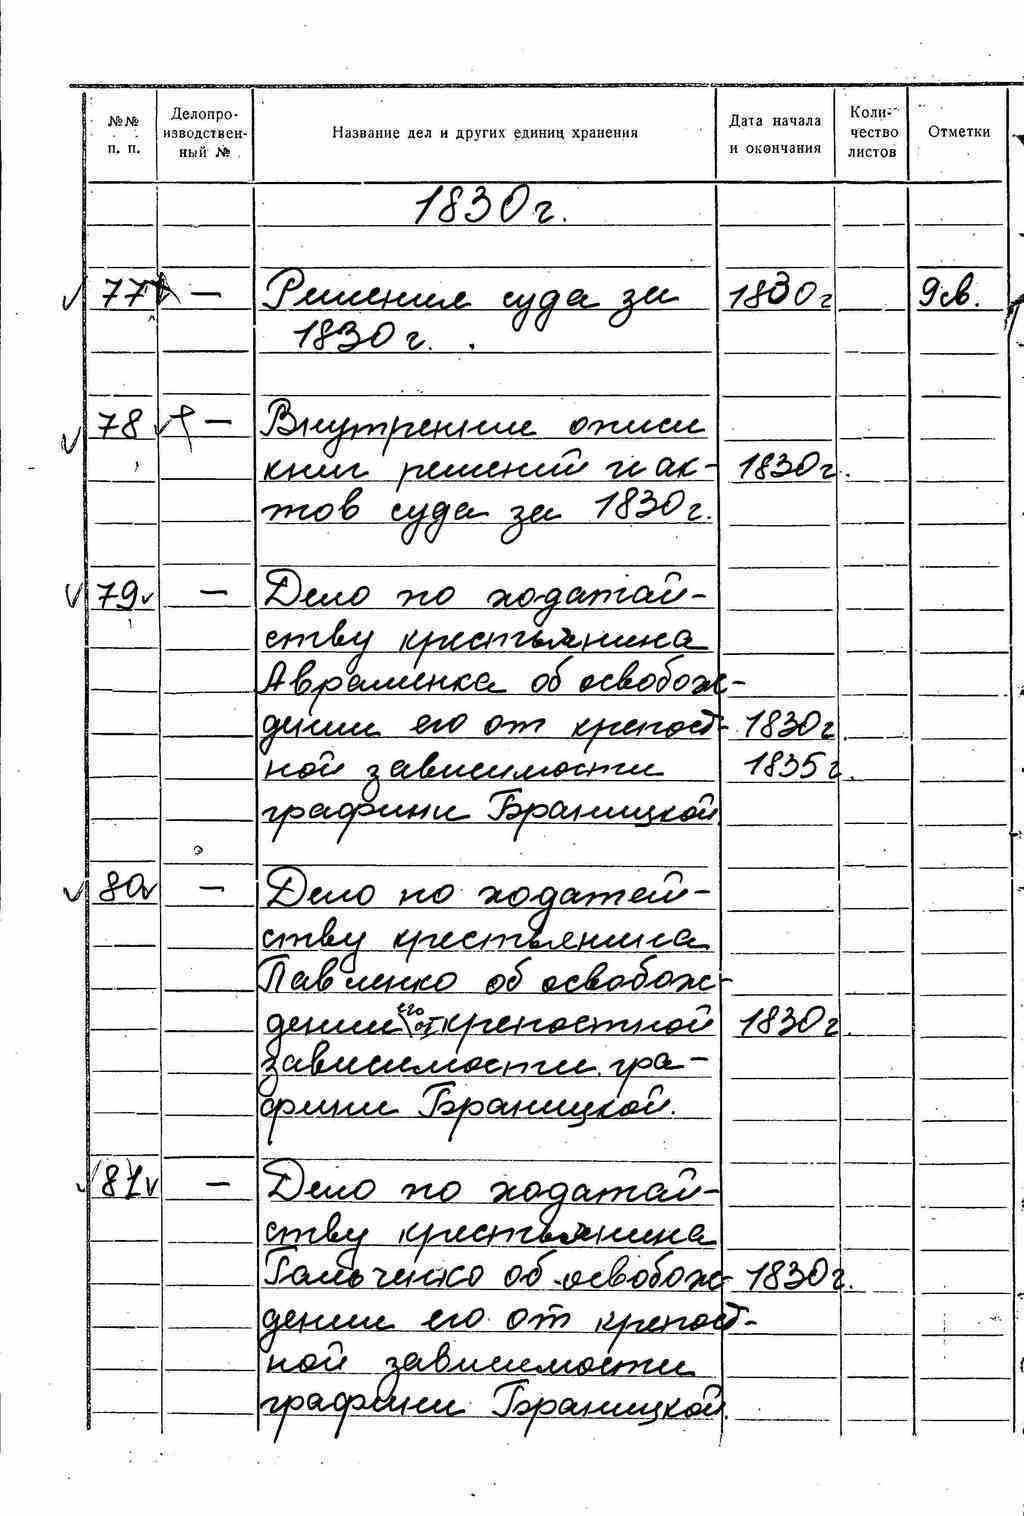 №№ п. п. Делопро-изводствен-ный № Название дел и других единиц хранения Дата начала и окончания Коли-чество листов Отметки
1830 г.
77 — Решения суда за 1830 г
1830 г.
78 — Внутренние описи
книг решений и ак- 1830 г.
тов суда за 1830 г.
79 — Дело по ходатай-
ству крестьянина
Авраменка об освобож-
дении его от крепост- 1830 г.
ной зависимости 1835 г.
графини Браницкой.
80 — Дело по ходатей-
ству крестьянина
Павленко об освобож-
дении его от крепостной 1830 г.
зависимости гра-
фини Браницкой.
81 — Дело по ходатай-
ству крестьянина
Гальченко об освобож- 1830 г.
дении его от крепост-
ной зависимости
графини Браницкой.